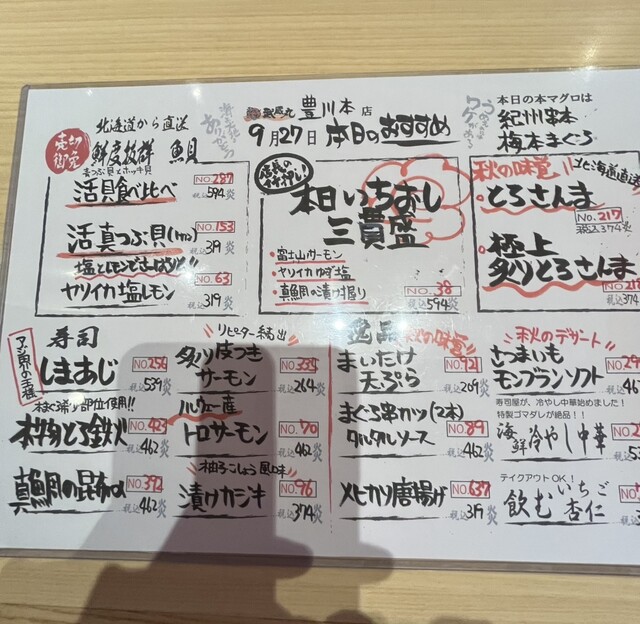 豊川本店
9月27日 本日のおすすめ
本日の本マグロは
紀州串本
梅本まぐろ
売切御免
北海道から直送
鮮度抜群 魚貝
真つぶ貝とホッキ貝
活貝食べ比べ
NO.287
税込594炎
活真つぶ貝
NO.153
税込319炎
塩とレモンでさっぱりと!!
ヤリイカ塩レモン
NO.63
税込319炎
本日いちおし
三貫盛
・富士山サーモン
・ヤリイカゆず塩
・真鯛の漬け握り
NO.38
税込594炎
秋の味覚
北海道直送
・とろさんま
NO.217
税込374炎
・極上
炙りとろさんま
NO.218
税込374
アジ界の王様
寿司
しまあじ
NO.256
税込539炎
本物とろ鉄火
NO.423
税込462炎
真鯛の昆布〆
NO.392
税込462炎
リピーター続出
炙り皮つき
サーモン
税込264炎
ノルウェー産
トロサーモン
NO.70
税込462炎
柚子こしょう風味
漬けカジキ
NO.96
税込374炎
逸品
秋の味覚
まいたけ
天ぷら
NO.92
税込209炎
まぐろ串カツ(2本)
タルタルソース
NO.89
税込462炎
メヒカリ唐揚げ
NO.637
税込319炎
秋のデザート
さつまいも
モンブランソフト
寿司屋が、冷やし中華始めました!
特製ゴマダレが絶品!!
海鮮冷やし中華
テイクアウトOK!
飲むいちご杏仁